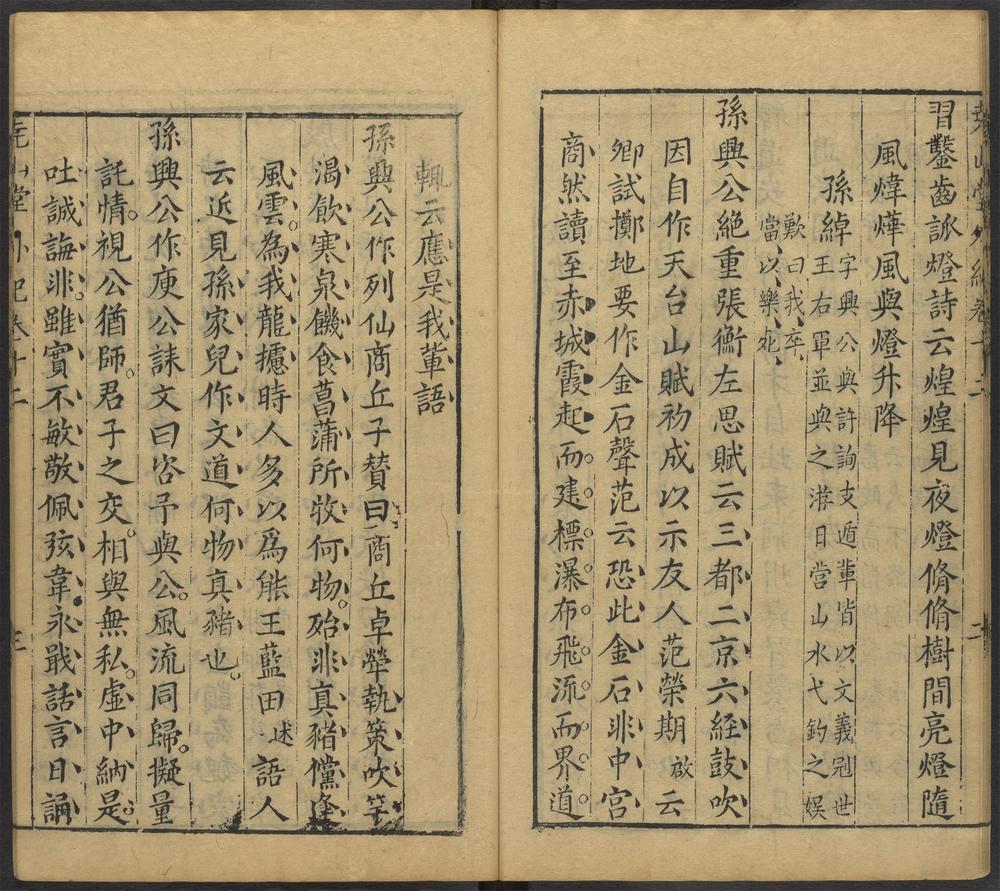 堯山堂外紀卷十二 二
習鑿齒詠燈詩云煌煌見夜燈脩脩樹間亮燈隨
風煒燁風與燈升降
孫綽
字興公與許詢支遁輩皆以文義冠世
王右軍並與之游日嘗山水弋釣之娛
歎曰我卒
當以樂死
孫興公絕重張衡左思賦云三都二京六經鼓吹
因自作天台山賦初成以示友人范榮期啟云
卿試擲地要作金石聲范云恐此金石非中宮
商然讀至赤城霞起而建標瀑布飛流而界道
輒云應是我輩語
孫興公作列仙商丘子贊曰商丘卓犖執策吹竽
渴飲寒泉饑食菖蒲所牧何物殆非真豬儻逢
風雲為我龍攄時人多以爲能王藍田述語人
云近見孫家兒作文道何物真豬也
孫興公作庾公誄文曰咨予與公風流同歸擬量
託情視公猶師君子之交相與無私虛中納是
吐誠誨非雖實不敏敬佩弦韋永戢話言日誦
堯山堂外紀卷十二 三